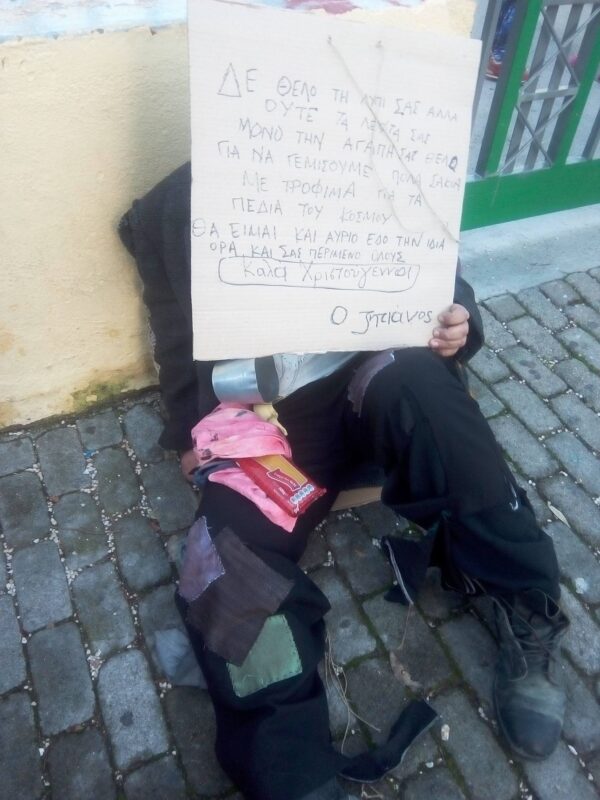 ΔΕ ΘΕΛΟ ΤΗ ΛΥΠΙ ΣΑΣ ΑΛΛΑ
ΟΥΤΕ ΤΑ ΛΕΥΤΑ ΣΑΣ
ΜΟΝΟ ΤΗΝ ΑΓΑΠΗ ΣΑΣ ΘΕΛΟ
ΓΙΑ ΝΑ ΓΕΜΙΣΟΥΜΕ ΠΟΛΑ ΣΑΚΙΑ
ΜΕ ΤΡΟΦΙΜΑ ΓΙΑ ΤΑ
ΠΕΔΙΑ ΤΟΥ ΚΟΣΜΟΥ
ΘΑ ΕΙΜΑΙ ΚΑΙ ΑΥΡΙΟ ΕΔΟ ΤΗΝ ΙΔΙΑ
ΟΡΑ, ΚΑΙ ΣΑΣ ΠΕΡΙΜΕΝΟ ΟΛΟΥΣ
Καλά Χριστούγεννα
Ο ζητιάνος